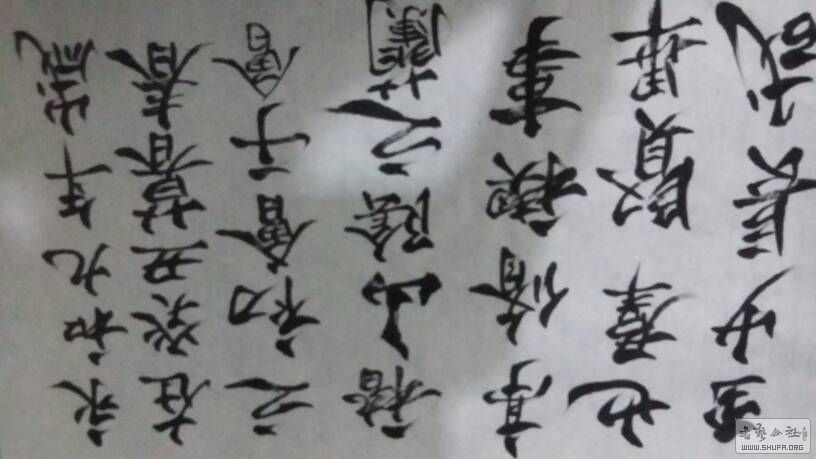 永和九年歲
在癸丑暮春
之初會于會
稽山陰之蘭
亭脩禊事
也羣賢畢
至少長咸
书艺公社
WWW.SHUFA.ORG